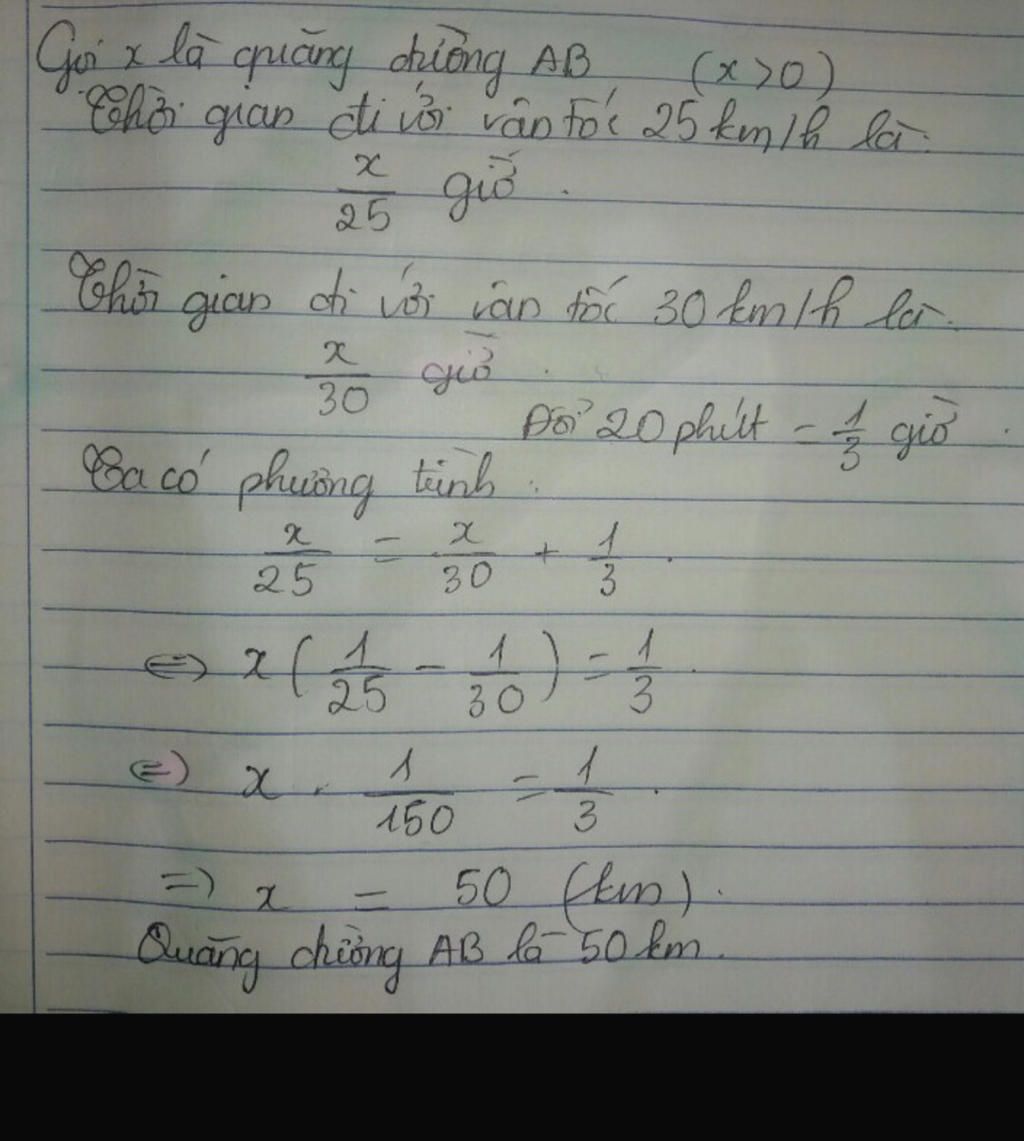 Gọi x là quãng đường AB (x>0)
Thời gian đi với vận tốc 25 km/h là:
x/25 giờ.
Thời gian đi với vận tốc 30 km/h là:
x/30 giờ.
Đổi 20 phút = 1/3 giờ.
Ta có phương trình:
x/25 = x/30 + 1/3.
⇔ x(1/25 - 1/30) = 1/3.
⇔ x . 1/150 = 1/3.
=> x = 50 (km).
Quãng đường AB là 50 km.